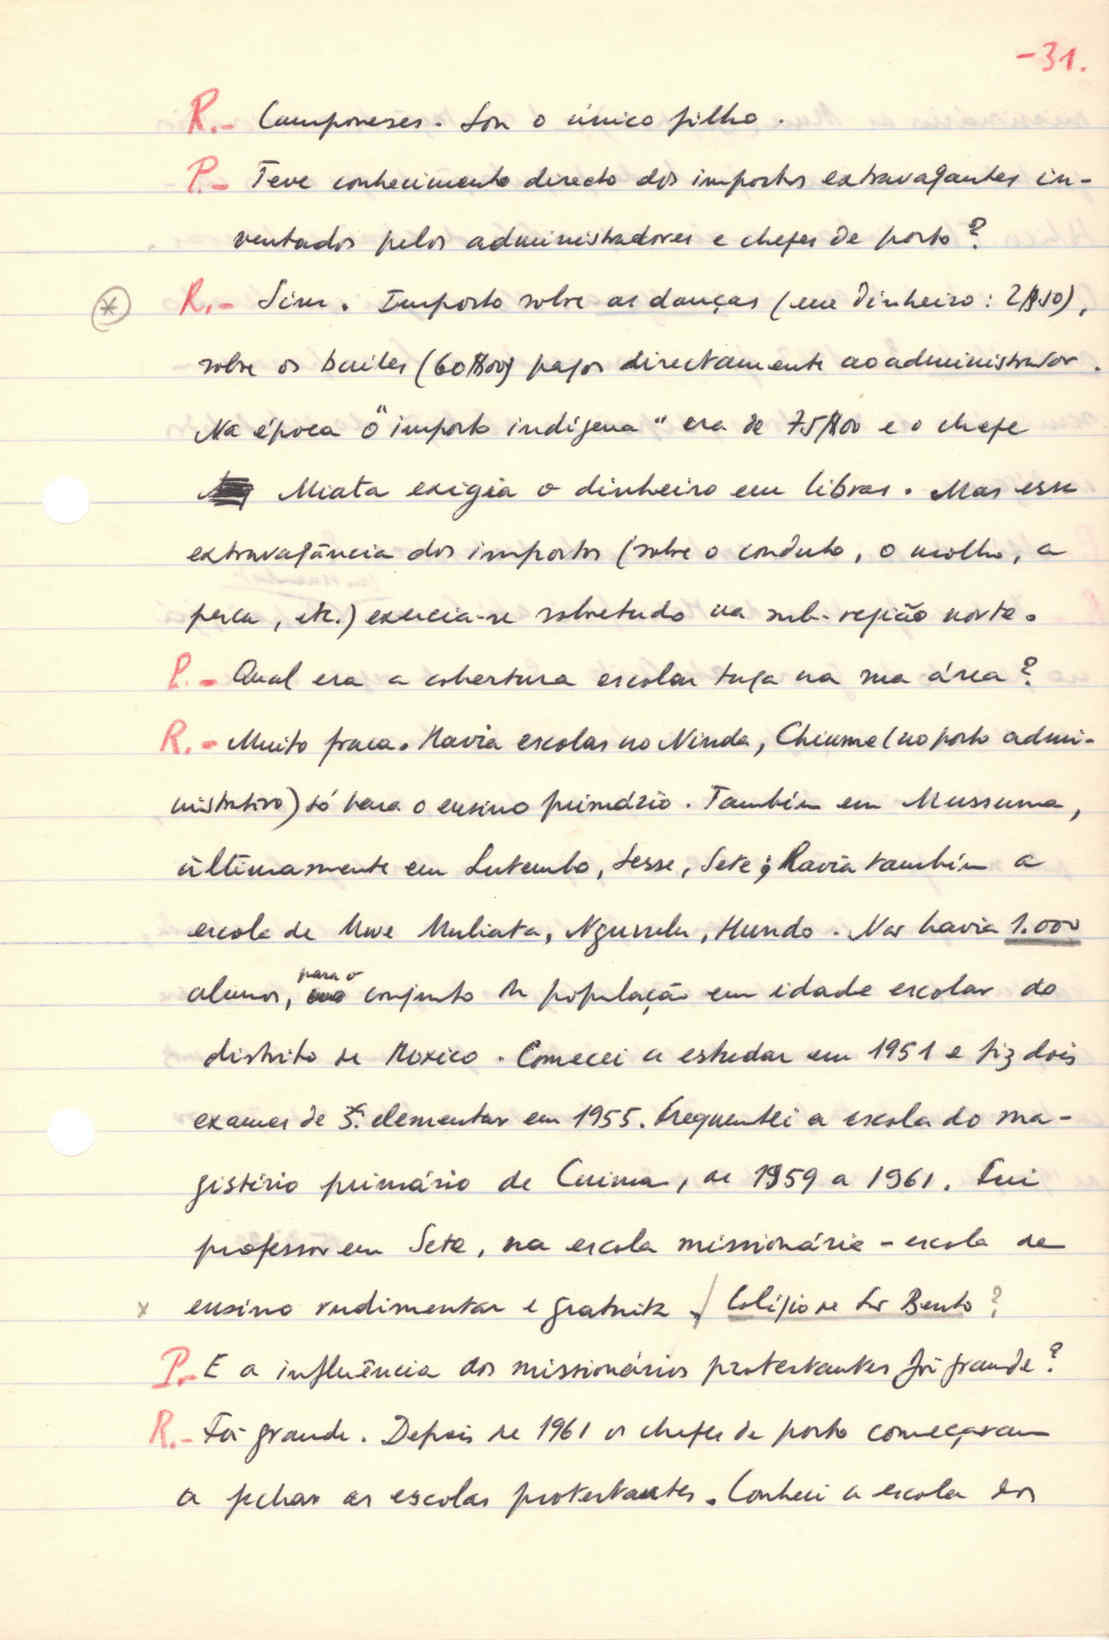 -31.
R.- Camponeses. Sou o único filho.
P.- Teve conhecimento directo dos impostos extravagantes in-
ventados pelos administradores e chefes de posto?
R.- Sim. Imposto sobre as danças (em dinheiro: 2$50),
sobre os bailes (60$00) pagos directamente ao administrador.
Na época o "imposto indígena" era de 75$00 e o chefe
Miata exigia o dinheiro em libras. Mas essa
extravagância dos impostos (sobre o conduto, o molho, a
pesca, etc.) exercia-se sobretudo na sub-região norte.
P.- Qual era a cobertura escolar tuga na sua área?
R.- Muito fraca. Havia escolas no Ninda, Chiume (no posto admi-
nistrativo) só para o ensino primário. Também em Mussuma,
ùltimamente em Lutembo, Sesse, Sete; Havia também a
escola de Mwe Muliata, Hundo. Nas havia 1.000
alunos, para o conjunto da população em idade escolar do
distrito de Moxico. Comecei a estudar em 1951 e fiz dois
exames de 3ª elementar em 1955. Frequentei a escola do ma-
gistério primário de Cuima, de 1959 a 1961. Fui
professor em Sete, na escola missionária - escola de
x ensino rudimentar e gratuita. / Colégio de São Bento?
P.- E a influência dos missionários protestantes foi grande?
R.- Foi grande. Depois de 1961 os chefes de posto começaram
a fechar as escolas protestantes. Conheci a escola dos